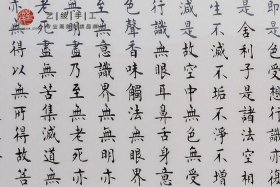 即是色受想行識亦
是舍利子是諸法空相
生不滅不垢不淨不增
減是故空中無色無受
無眼耳鼻舌身意無
色聲香味觸法無眼界
至無意識界無無明亦
無明盡乃至無老死亦
老死盡無苦集滅道無
亦無得以無所得故菩
手工